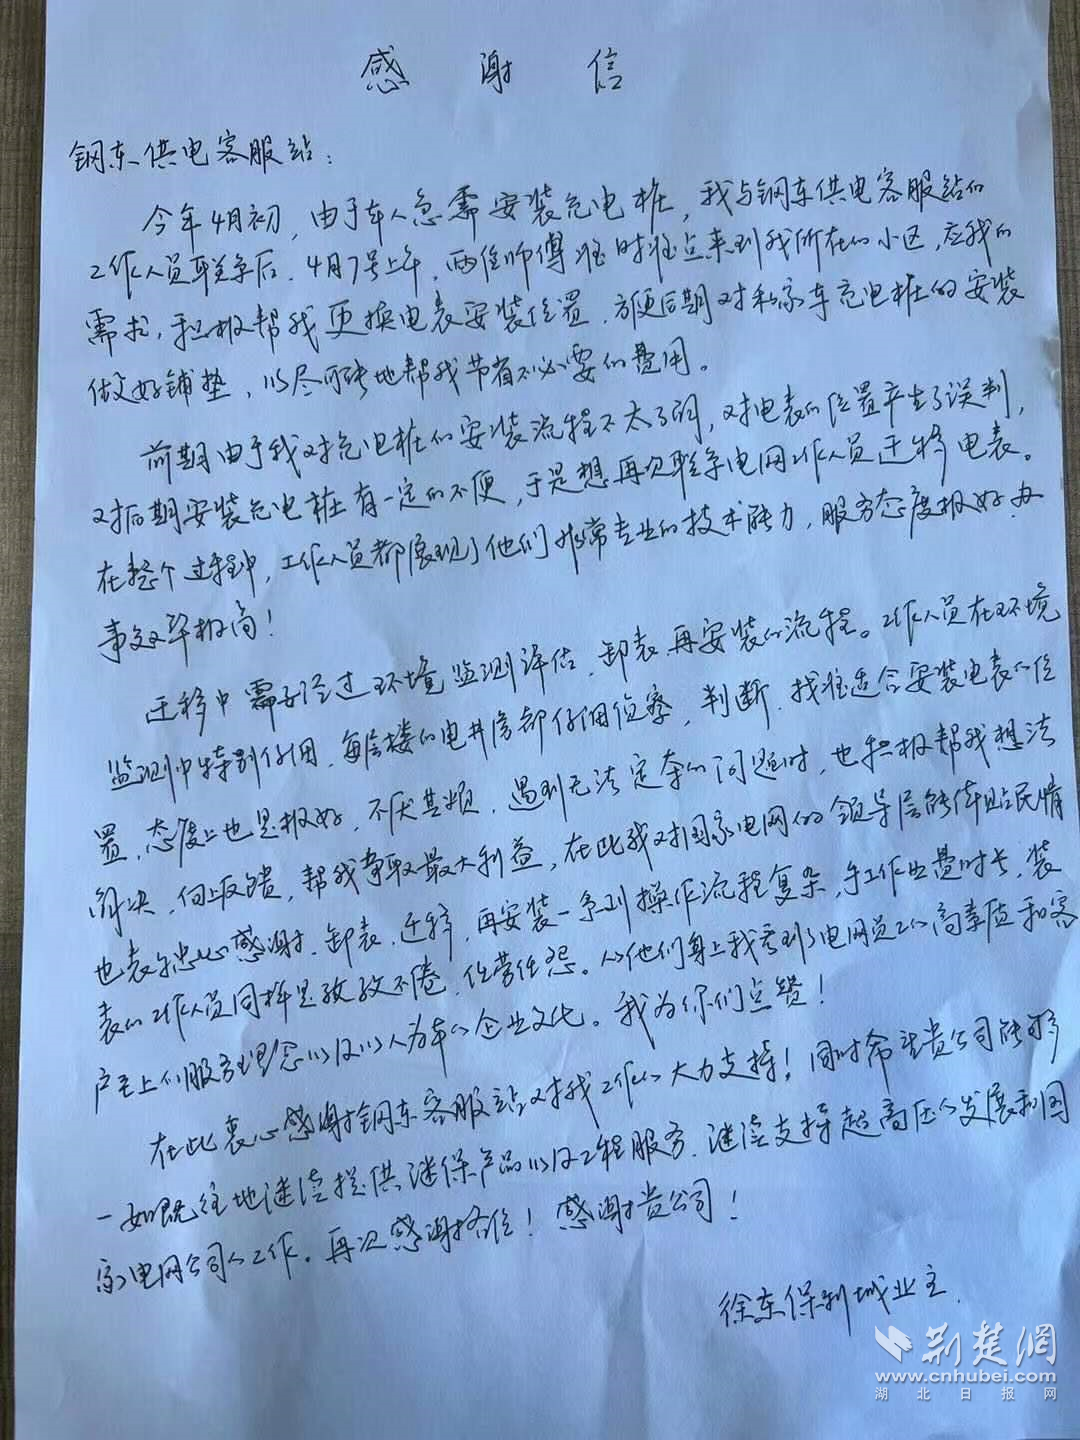 感谢信
钢东供电客服站：
今年4月初，由于本人急需安装充电桩，我与钢东供电客服站的
工作人员联系后，4月7号上午，两位师傅准时准点来到我所在的小区，应我的
需求，积极帮我更换电表安装位置，方便后期对私家车充电桩的安装
做好铺垫，以尽可能地帮我节省不必要的费用。
前期由于我对充电桩的安装流程不太了解，对电表的位置产生了误判，
对后期安装充电桩有一定的不便，于是想再次联系电网工作人员迁移电表。
在整个过程中，工作人员都展现了他们非常专业的技术能力，服务态度极好，办
事效率极高！
迁移中需要经过环境监测评估，卸表，再安装的流程。工作人员在环境
监测中特别仔细，每层楼的电井房都仔细侦察，判断，找准适合安装电表的位
置，态度上也是极好，不厌其烦，遇到无法定夺的问题时，也积极帮我想法
解决，向上反馈，帮我争取最大利益，在此我对国家电网的领导层能体贴民情
也表示忠心感谢。卸表，迁移，再安装一系列操作流程复杂，手工作业费时长，装
表的工作人员同样是孜孜不倦，任劳任怨。从他们身上我看到了电网员工的高素质和客
户至上的服务理念以及以人为本的企业文化。我为你们点赞！
在此衷心感谢钢东客服站对我工作的大力支持！同时希望贵公司能够
一如既往地继续提供继保产品以及工程服务，继续支持超高压的发展和国
家电网公司的工作。再次感谢各位！感谢贵公司！
徐东保利城业主
荆楚网
www.cnhubei.com
湖北日报网